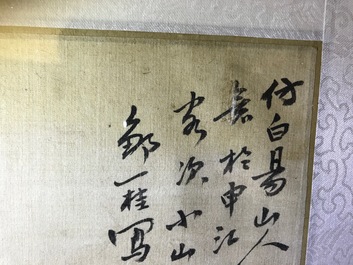 仿白昜山人
於申江
客次小山
鄒一桂寫